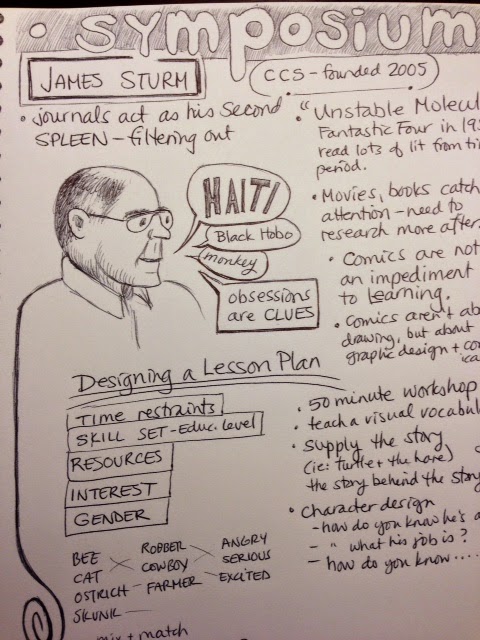 • Symposium
JAMES STURM
CCS - founded 2005
• Journals act as his second
SPLEEN - filtering out
HAITI
Black Hobo
monkey
obsessions
are CLUES
• "Unstable Molecul
Fantastic Four in 195
read lots of lit from ti
period.
• Movies, books catch
attention - need to
research more after.
• Comics are not
an impediment
to learning.
• Comics aren't ab
drawing, but about
graphic design + co
Designing a Lesson Plan
TIME restraints
SKILL SET - Educ. level
RESOURCES
INTEREST
GENDER
BEE
CAT
OSTRICH
SKUNK
ROBBER
COWBOY
FARMER
ANGRY
SERIOUS
EXCITED
mix + match
• 50 minute workshop
• teach a visual vocabul
• supply the story
(ie: turtle + the hare)
the story behind the story
• character design
- how do you know he's a
- " what his job is?
- how do you know....